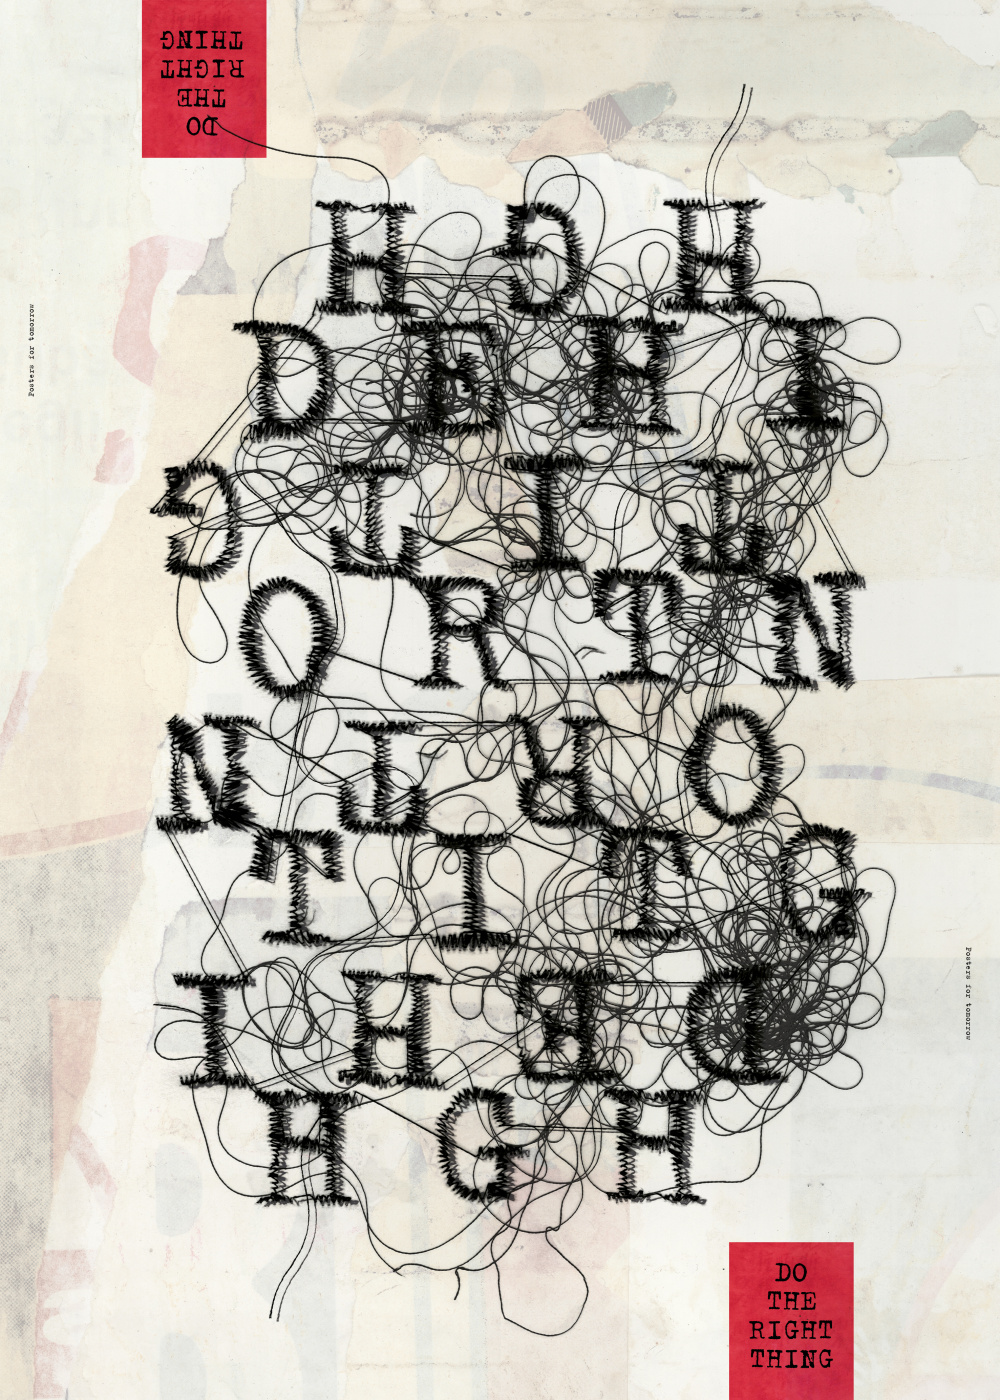 DO
THE
RIGHT
THING
H G H
D E H I
G T I T
O R T N
N T R O
T I T G
I H E D
H G H
Posters for tomorrow
Posters for tomorrow
DO
THE
RIGHT
THING